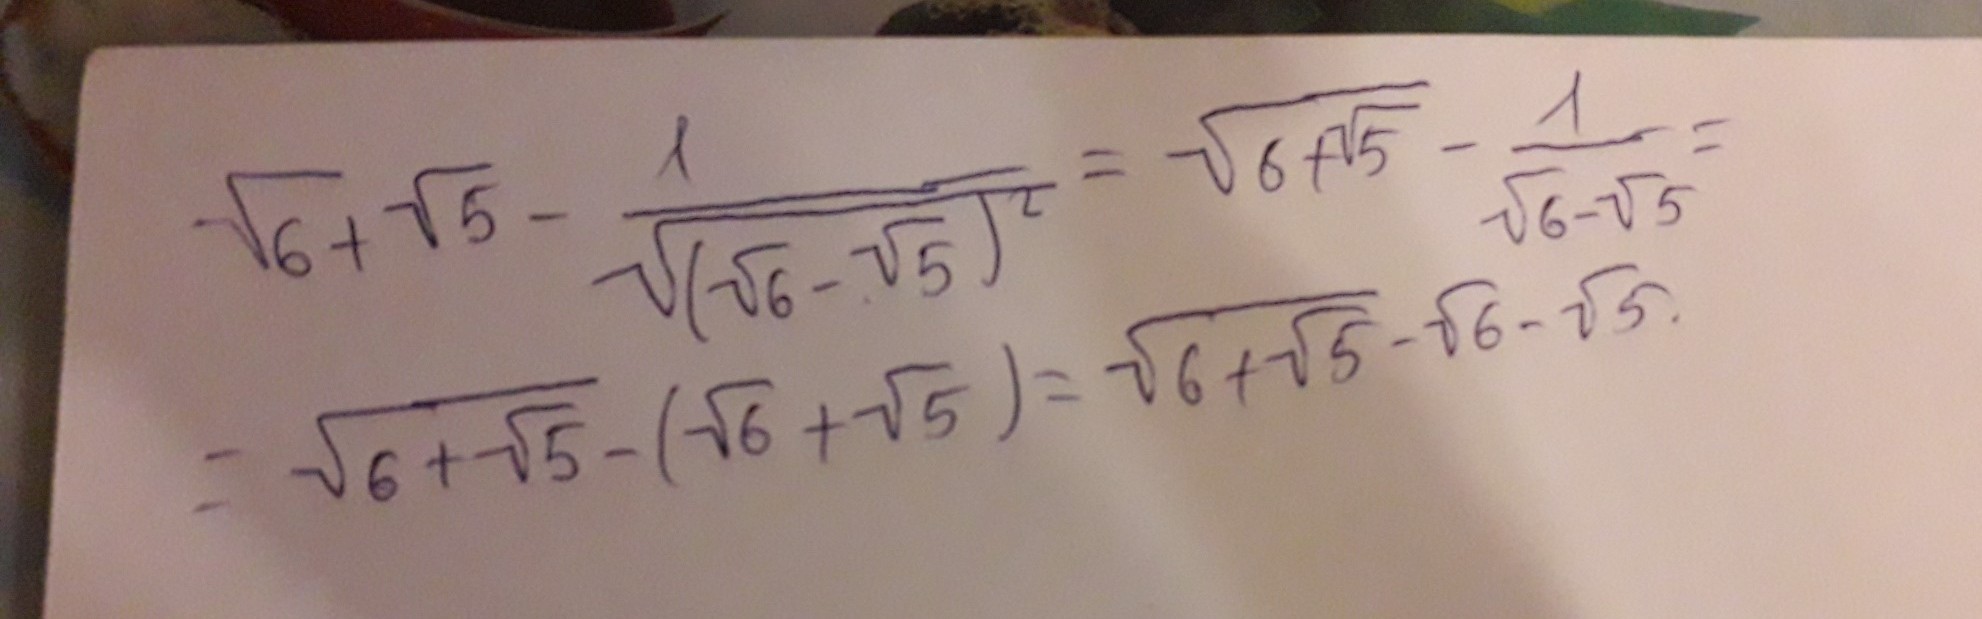 √6 + √5 - 1/√((√6 - √5)²) = √(6+√5) - 1/(√6-√5) =
= √(6+√5) - (√6 + √5) = √(6+√5) - √6 - √5.